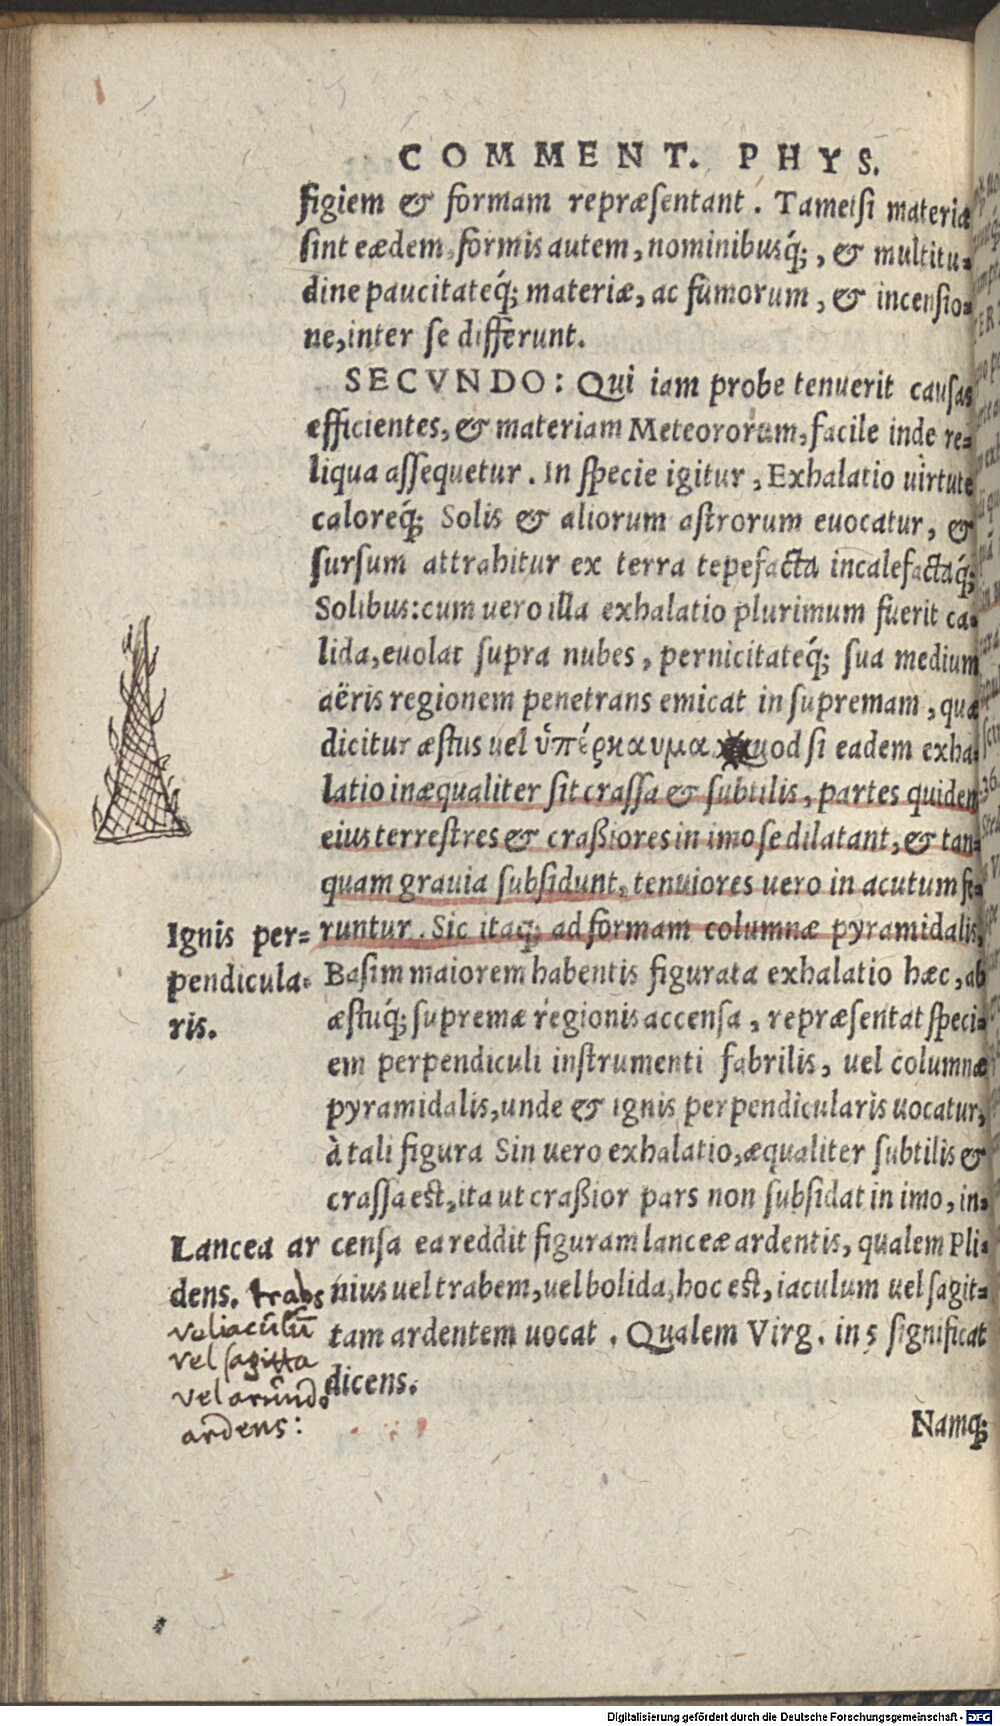 COMMENT. PHYS.
figiem & formam repræſentant. Tametſi materia
ſint eædem, formis autem, nominibusq́;, & multitu=
dine paucitateq́; materiæ, ac fumorum, & incenſio=
ne, inter ſe differunt.
SECVNDO: Qui iam probe tenuerit cauſas
efficientes, & materiam Meteororum, facile inde re=
liqua aſſequetur. In ſpecie igitur, Exhalatio uirtute
caloreq́; Solis & aliorum aſtrorum euocatur, &
ſurſum attrahitur ex terra tepefacta incalefactaq́;
Solibus: cum uero illa exhalatio plurimum fuerit ca=
lida, euolat ſupra nubes, pernicitateq́; ſua medium
aëris regionem penetrans emicat in ſupremam, quæ
dicitur æſtus uel ὑπέρκαυμα. Quod ſi eadem exha=
latio inæqualiter ſit craſſa & ſubtilis, partes quidem
eius terreſtres & craßiores in imo ſe dilatant, & tan=
quam grauia ſubſidunt, tenuiores uero in acutum fe=
Ignis per= runtur. Sic itaq; ad formam columnæ pyramidalis,
pendicula= Baſim maiorem habentis figurata exhalatio hæc, ab
ris. æſtuq́; ſupremæ regionis accenſa, repræſentat ſpeci=
em perpendiculi inſtrumenti fabrilis, uel columnæ
pyramidalis, unde & ignis perpendicularis uocatur,
à tali figura Sin uero exhalatio, æqualiter ſubtilis &
craſſa eſt, ita ut craßior pars non ſubſidat in imo, in=
Lancea ar cenſa ea reddit figuram lanceæ ardentis, qualem Pli=
dens. trabs nius uel trabem, uel bolida, hoc eſt, iaculum uel ſagit=
vel iaculū tam ardentem uocat. Qualem Virg. in 5 ſignificat
vel ſagitta
vel arundo dicens.
ardens:
Namq;
Digitalisierung gefördert durch die Deutsche Forschungsgemeinschaft - DFG